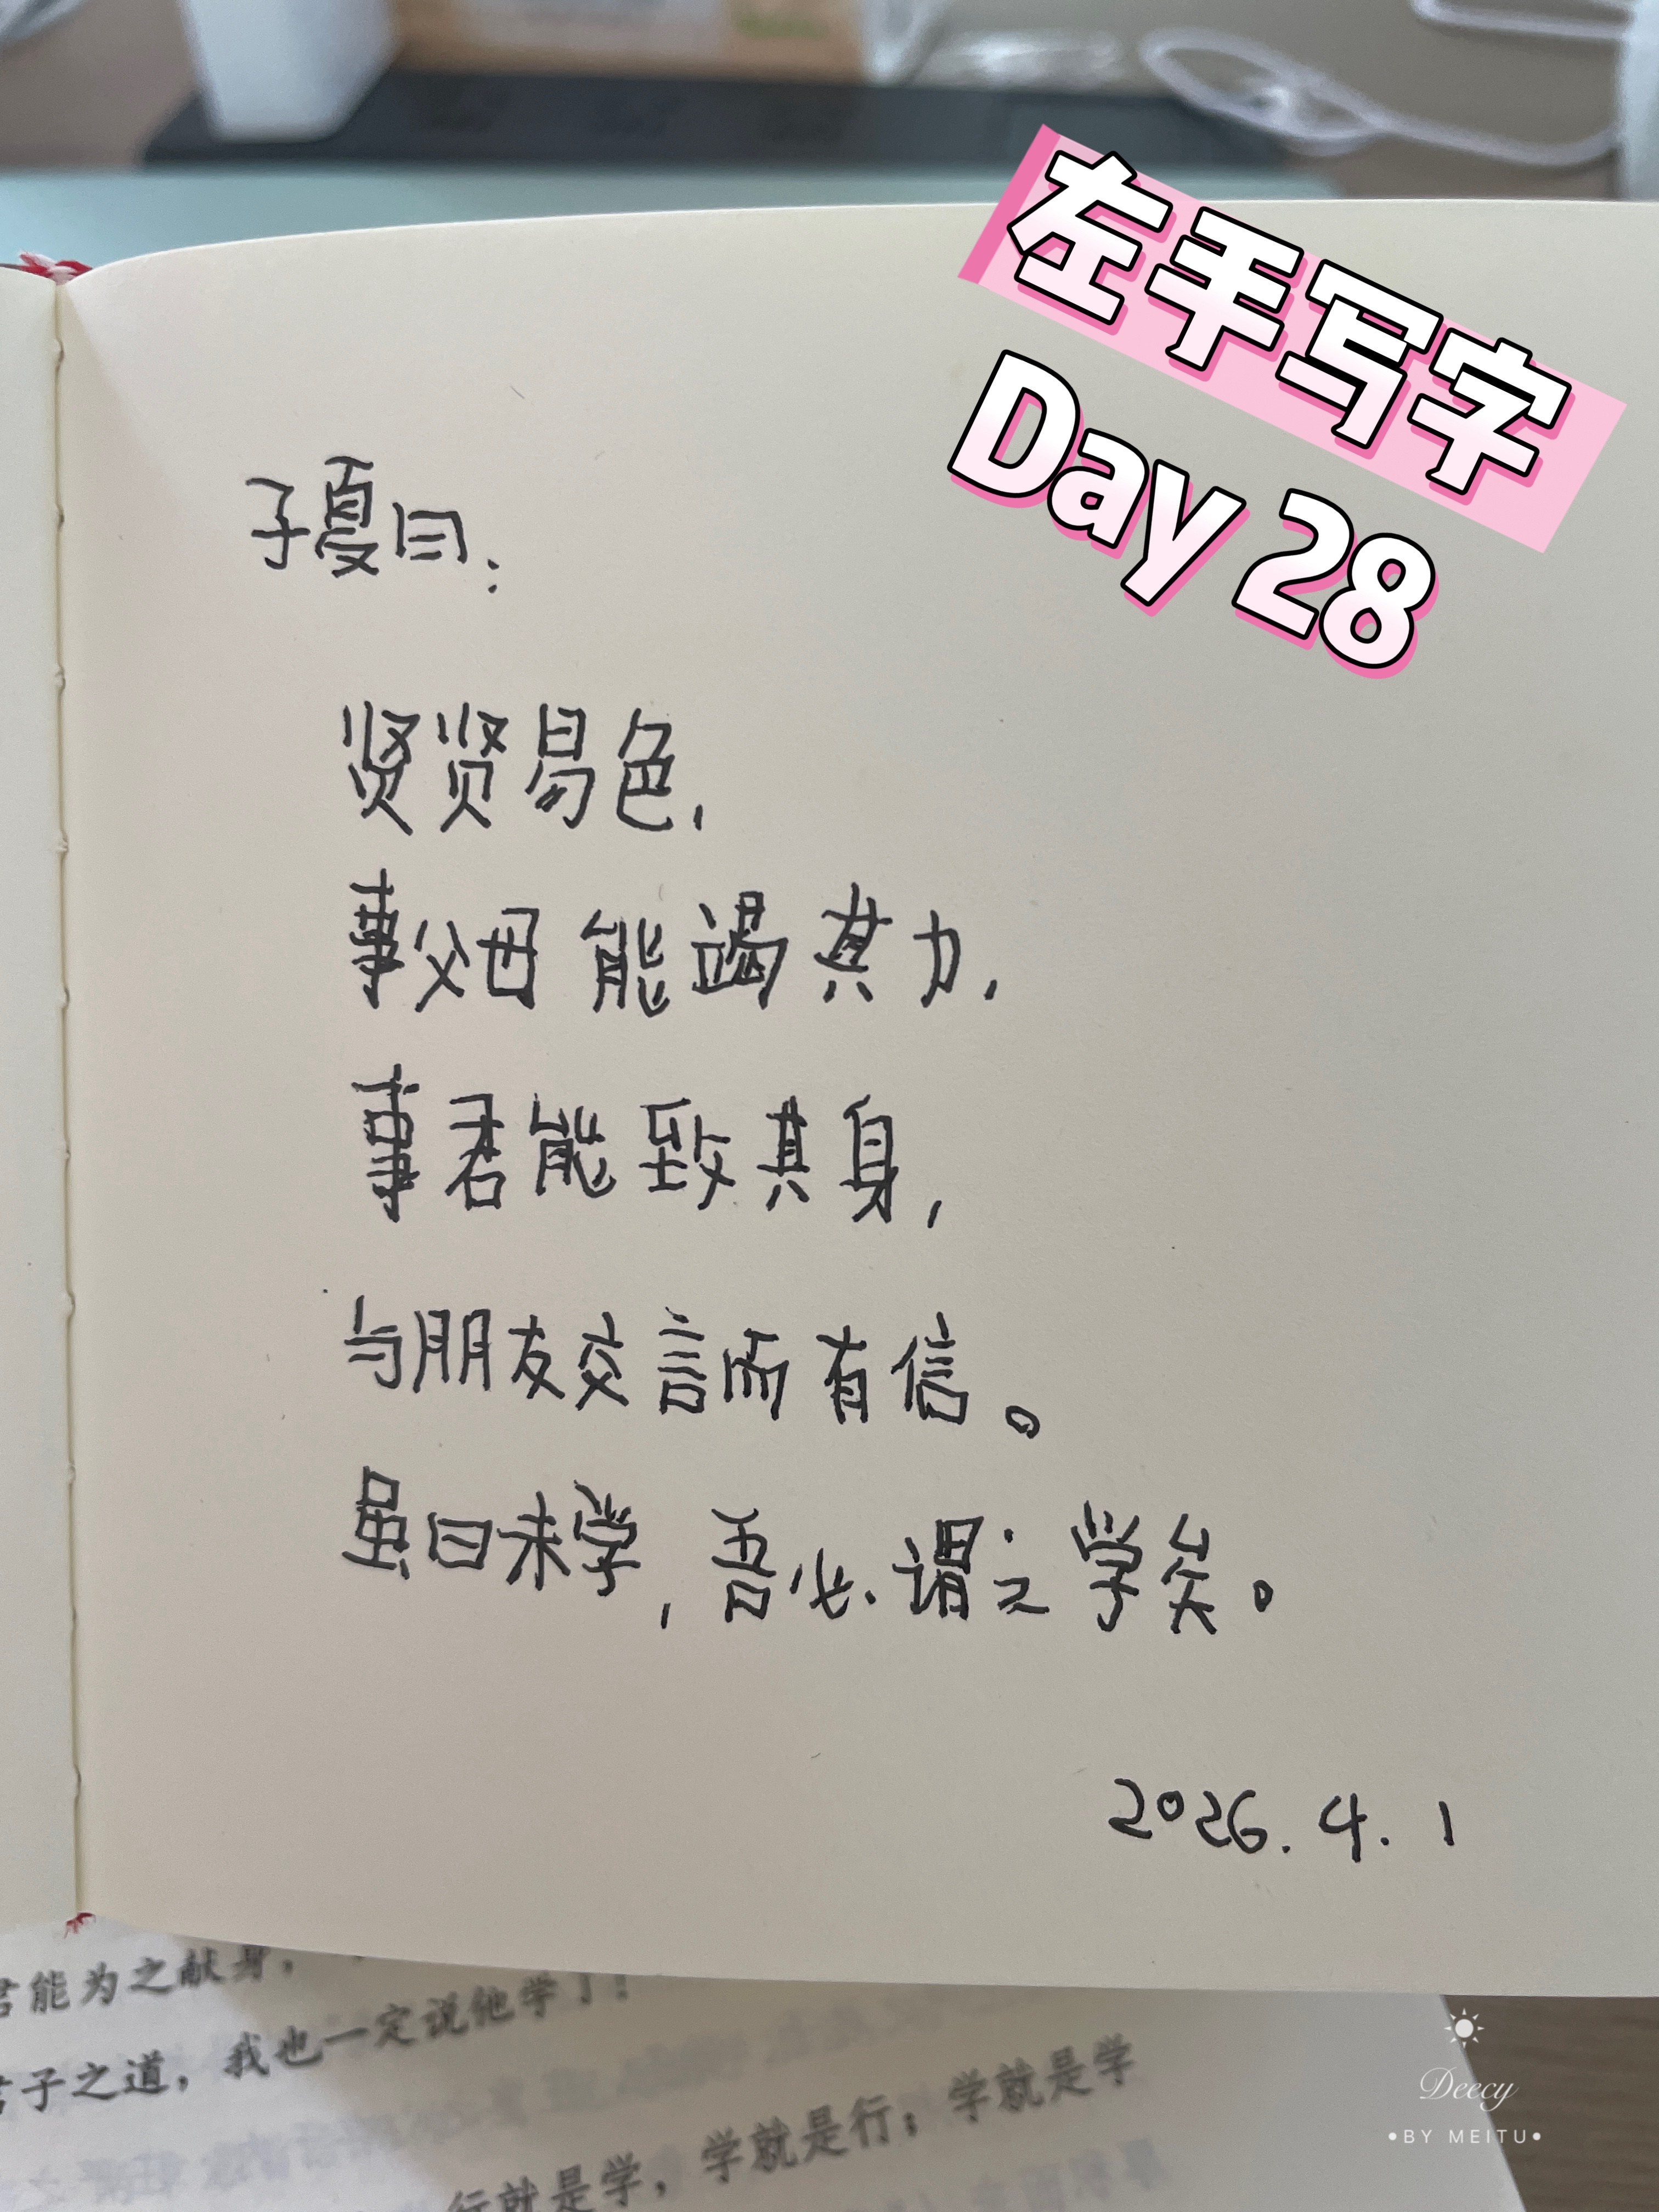 左手写字
Day 28
子夏曰:
贤贤易色,
事父母能竭其力,
事君能致其身,
与朋友交言而有信。
虽曰未学,吾必谓之学矣。
2026.4.1
君能为之献身,
君子之道,我也一定说他学了!
行就是学,学就是行;学就是学
Deecy
•BY MEITU•